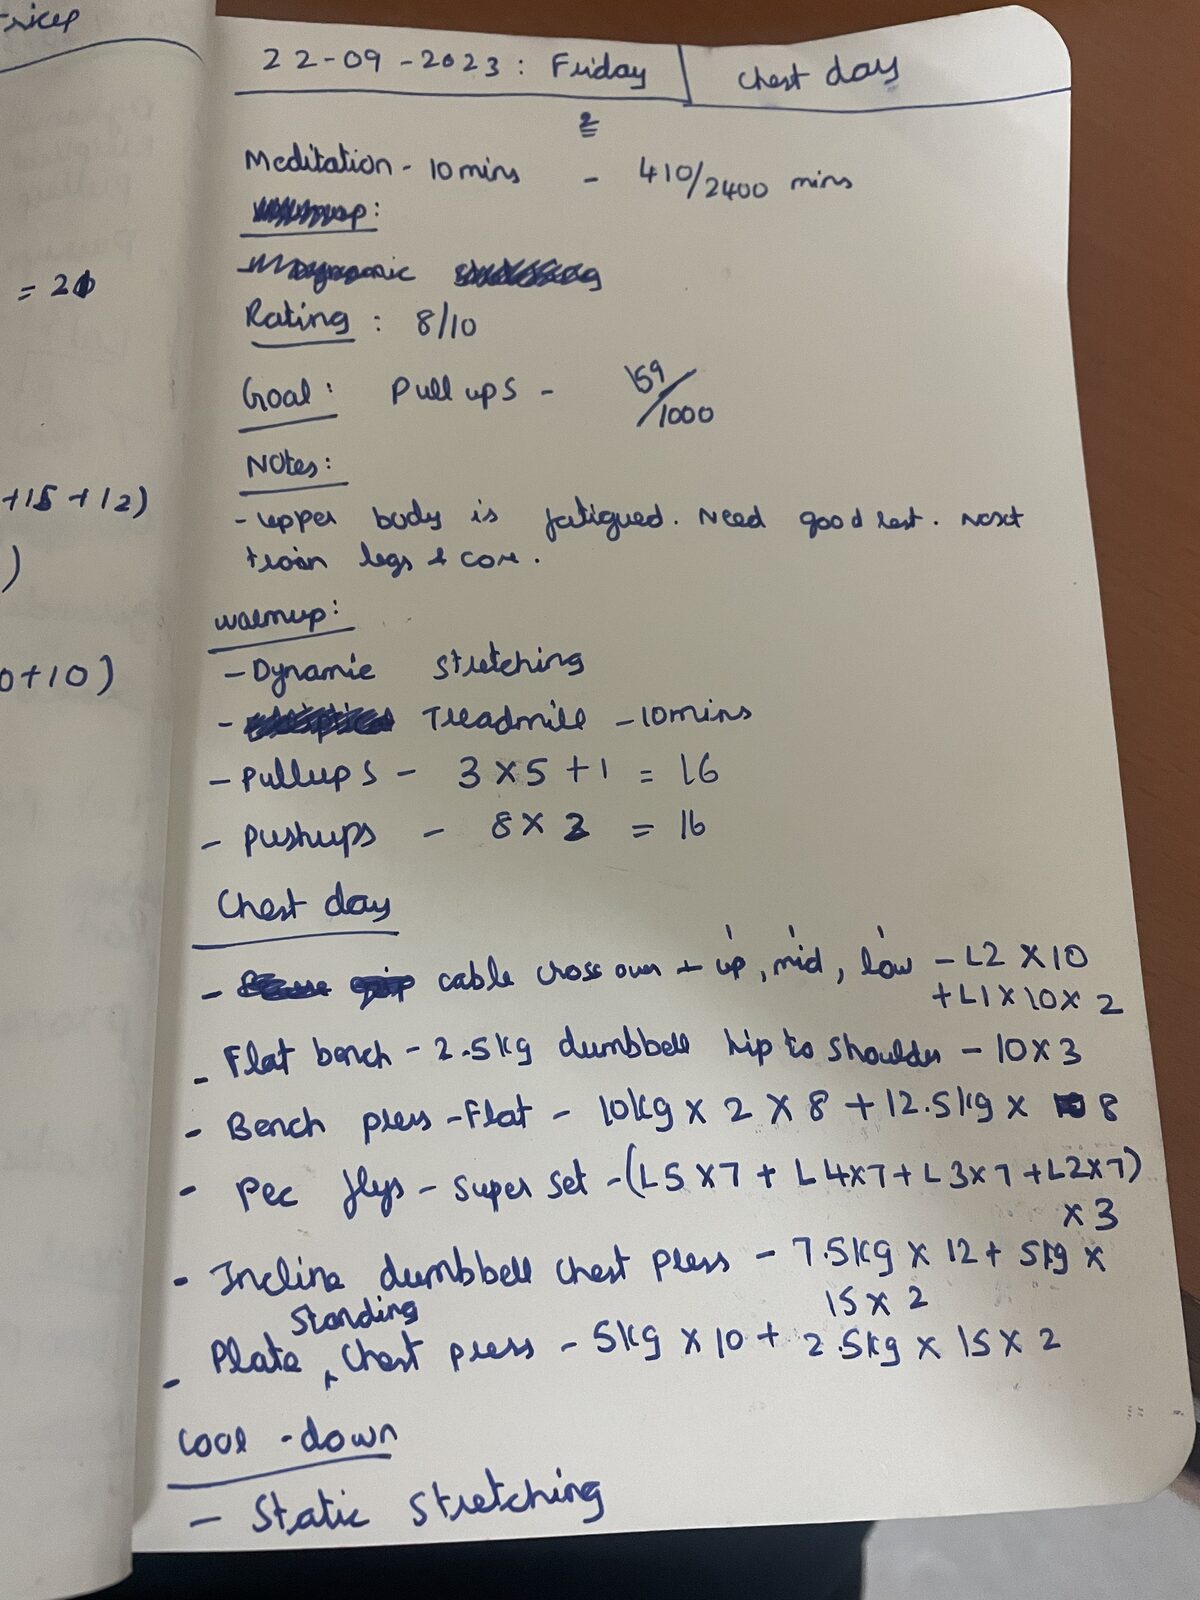 22-09-2023: Friday | Chest day
2
Meditation - 10 mins - 410/2400 mins
Rating: 8/10
Goal: Pull ups - 159/1000
Notes:
- upper body is fatigued. Need good rest. Next
train legs & core.
Warmup:
- Dynamic stretching
- Treadmill - 10 mins
- Pullups - 3 x 5 + 1 = 16
- Pushups - 8 x 2 = 16
Chest day
- cable cross over + up, mid, low - L2 x 10
+ L1 x 10 x 2
- Flat bench - 2.5kg dumbbell hip to shoulder - 10 x 3
- Bench press - Flat - 10kg x 2 x 8 + 12.5kg x 8
- Pec flys - Super set - (L5 x 7 + L4 x 7 + L3 x 7 + L2 x 7)
x 3
- Incline dumbbell chest press - 7.5kg x 12 + 5kg x
15 x 2
- Plate Standing Chest press - 5kg x 10 + 2.5kg x 15 x 2
Cool-down
- Static stretching
= 21
+15 + 12)
)
0+10)